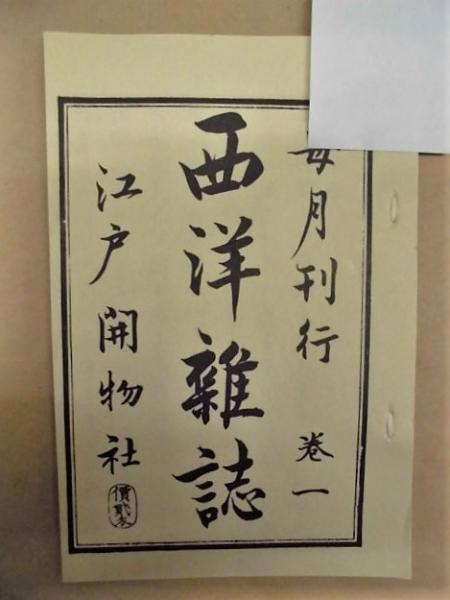 毎月刊行 巻一
西洋雜誌
江戸 開物社
價貳匁